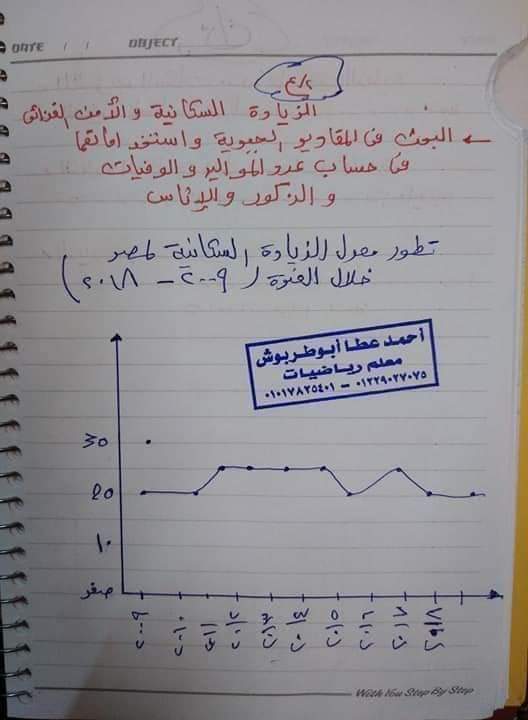 DATE / / OBJECT
٢/ع
الزيادة السكانية والأمن الغذائى
← البحث فى المقادير الجبرية واستخداماتها
فى حساب عدد المواليد والوفيات
والذكور والإناس
تطور معدل الزيادة السكانية لمصر
خلال الفترة (٢٠٠٩ - ٢٠١٨)
أحمد عطا أبوطربوش
معلم رياضيات
٠١٢٢٩٠٢٧٠٧٥ - ٠١٠١٧٨٢٥٤٠١
٣٠
٢٠
١٠
صفر
With You Step By Step